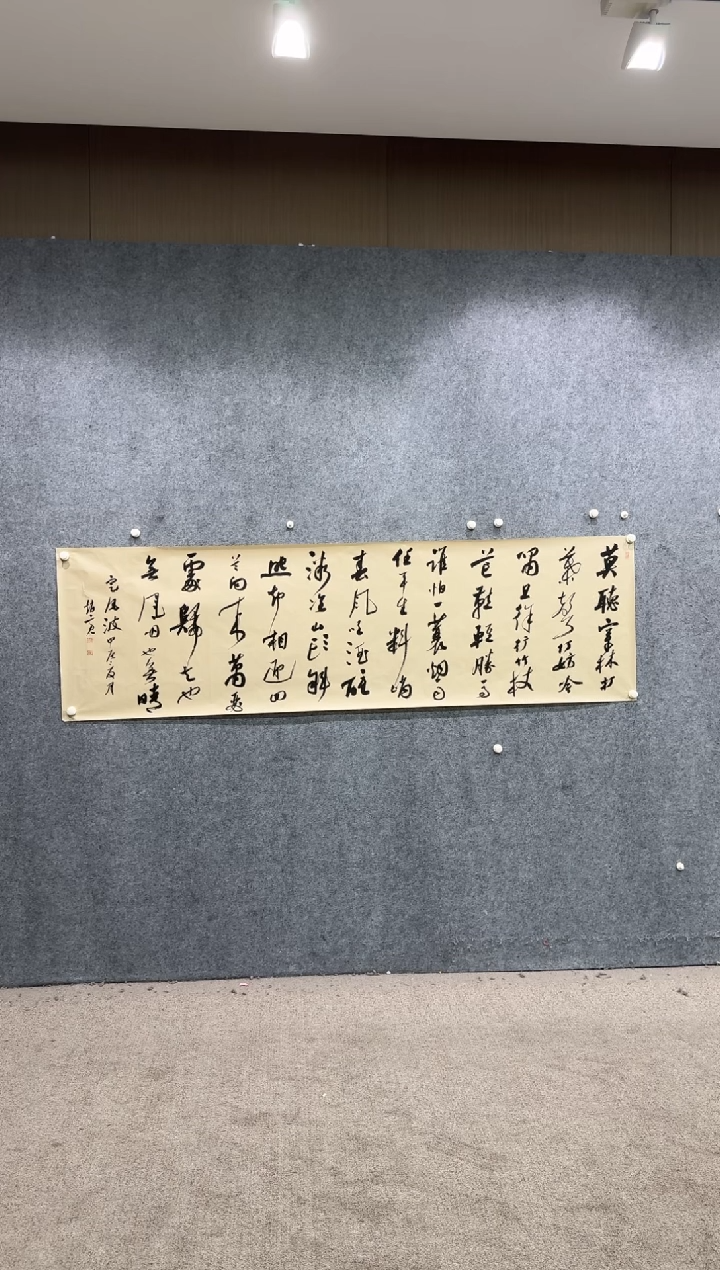 莫聽穿林打
葉聲何妨吟
嘯且徐行竹杖
芒鞋輕勝馬
誰怕一蓑烟雨
任平生料峭
春風吹酒醒
微冷山頭斜
照却相迎回
首向來蕭瑟
處歸去也
無風雨也無晴
定風波甲辰夏月